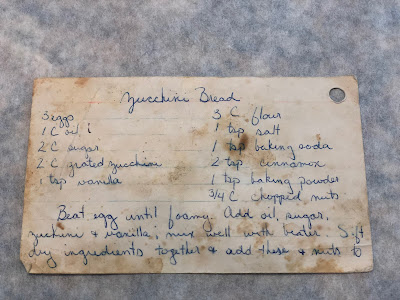 Zucchini Bread
3 eggs
1 C oil
2 C sugar
2 C grated zucchini
1 tsp vanilla
3 C flour
1 tsp salt
1 tsp baking soda
2 tsp cinnamon
1 tsp baking powder
3/4 C chopped nuts
Beat egg until foamy. Add oil, sugar,
zuchini & vanilla; mix well with beater. Sift
dry ingredients together & add these & nuts to